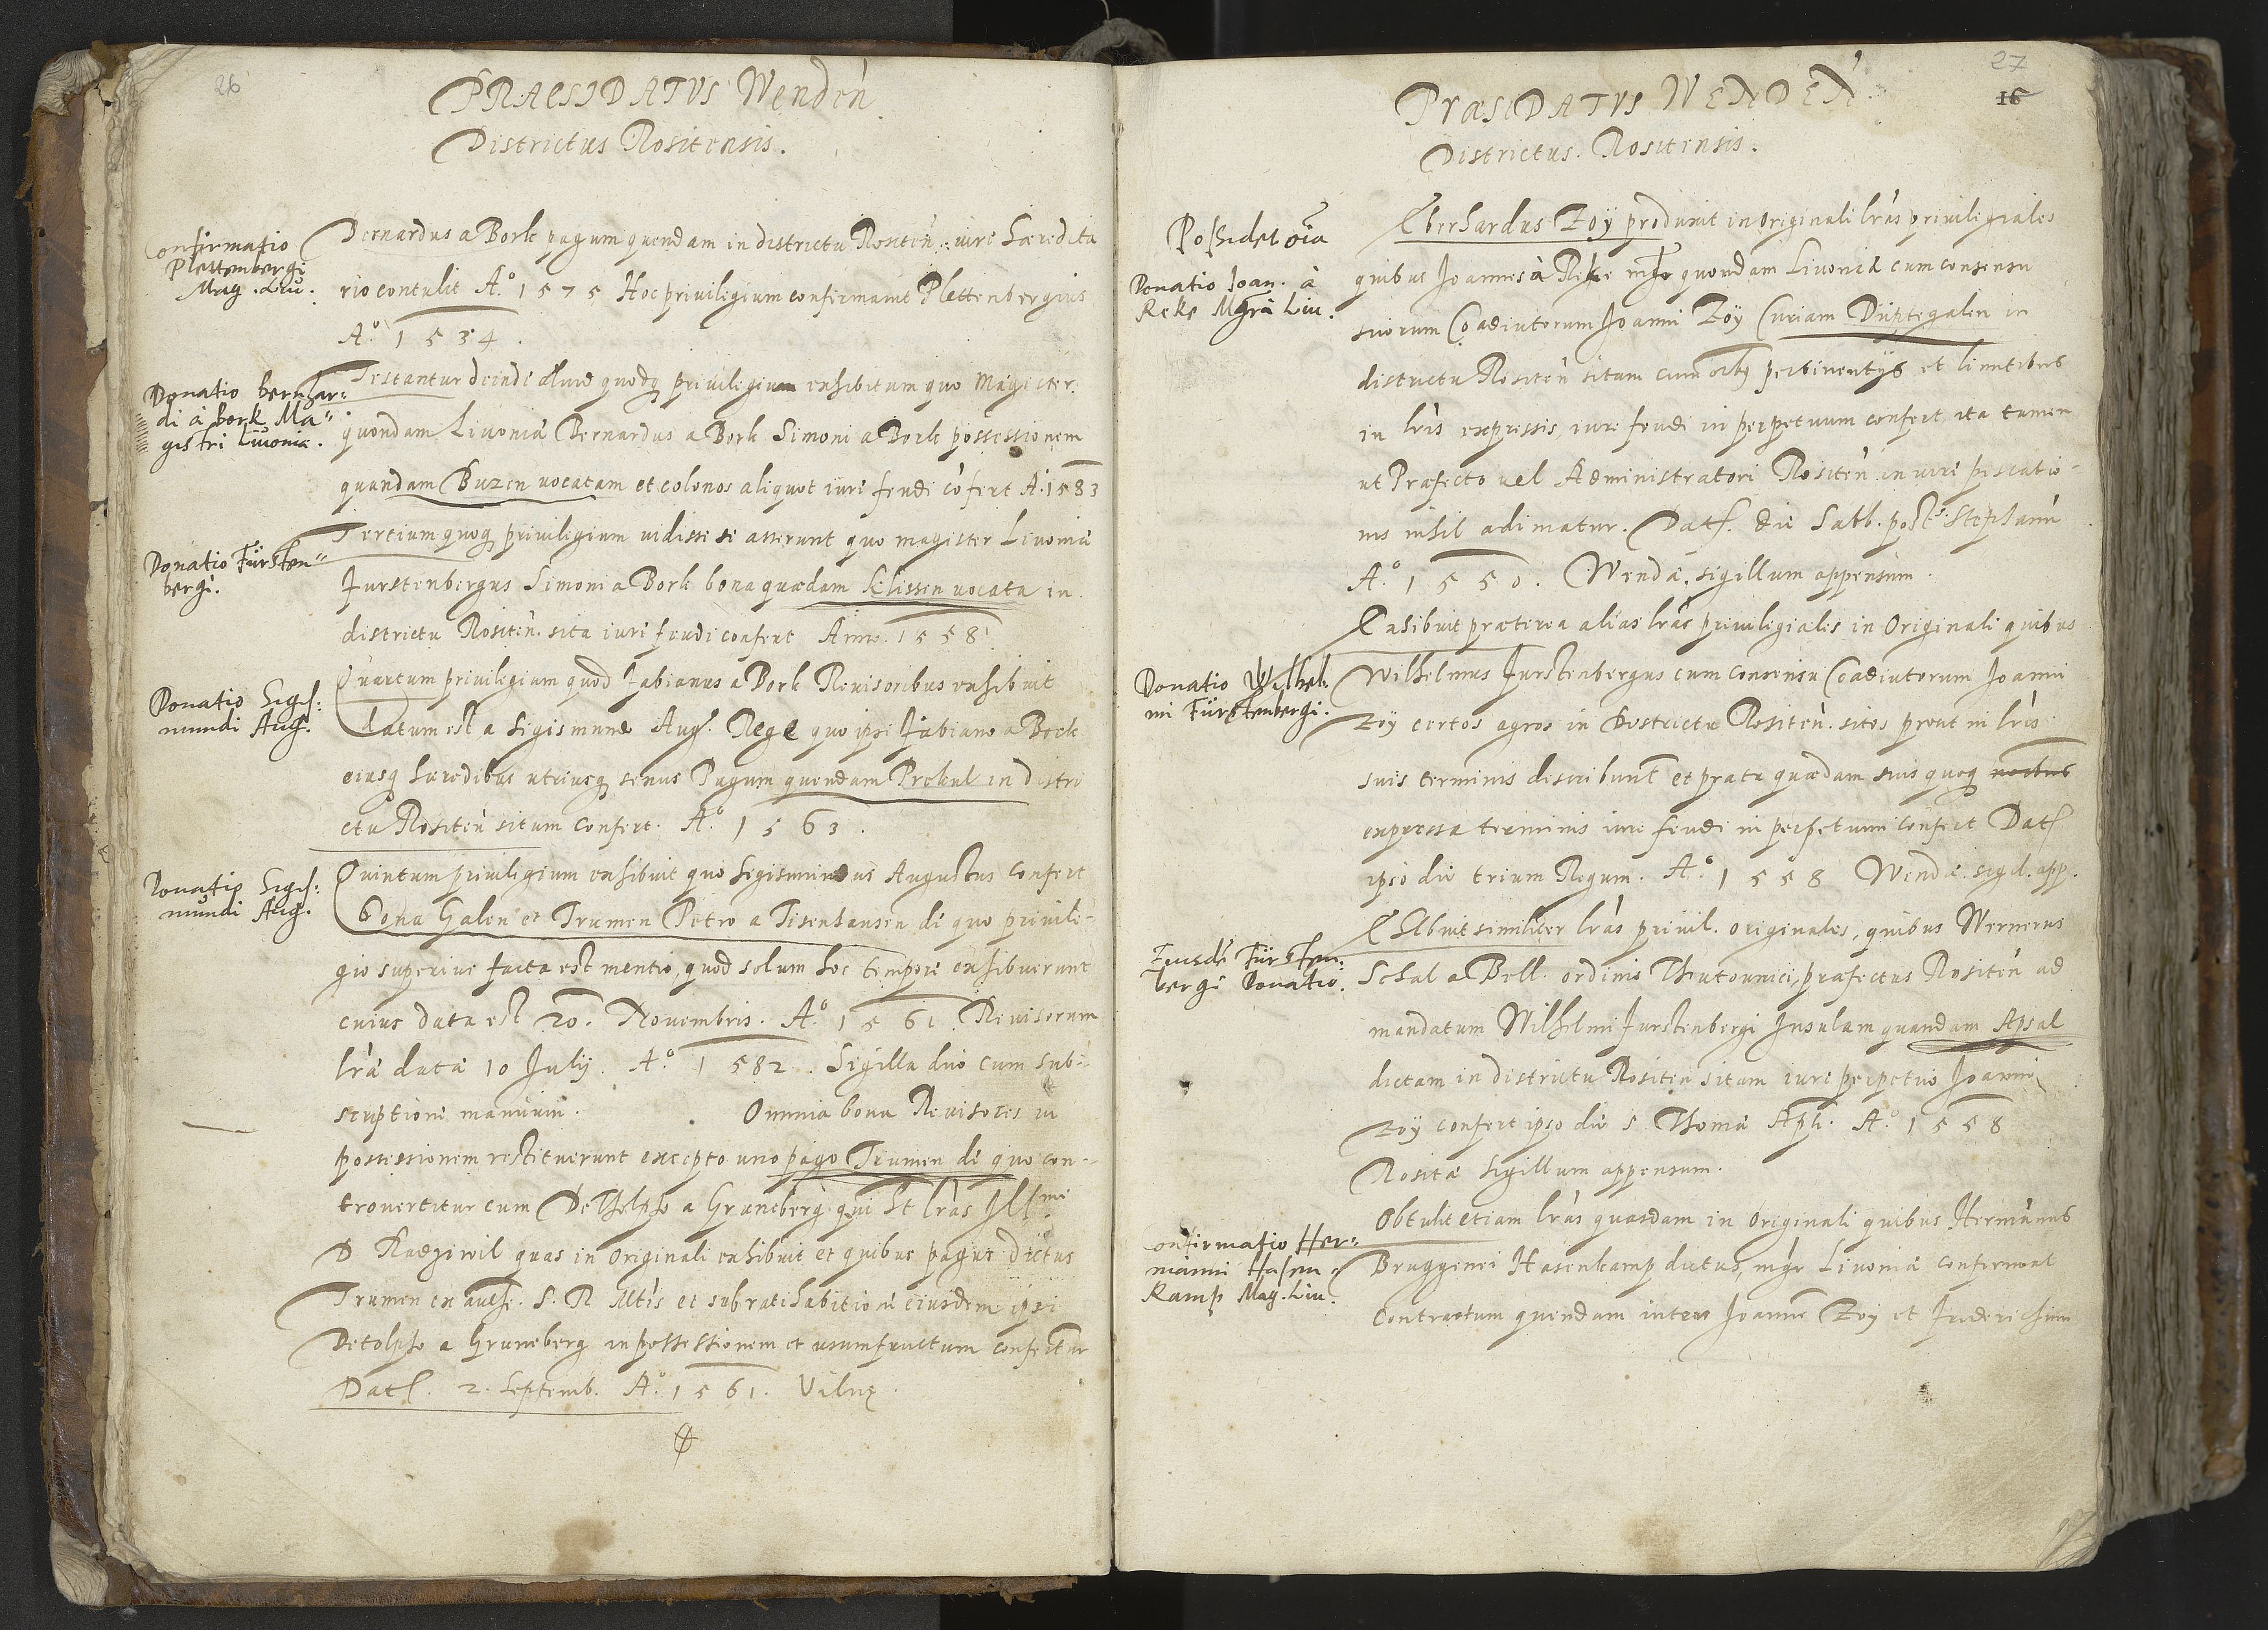 26
PRAESIDATVS Wendeǹ
Districtus Rositensis.
Confirmatio
Plettenbergi
Mag. Liu.
Bernardus a Bork pagum quendam in districtu Rositeǹ. iure Hæredita
rio contulit A.º 1575 Hoc priuilegium confirmauit Plettenbergius
A.º 1534.
Donatio Bernhar=
di à Bork Ma=
gistri Liuoniæ.
Testantur deinde aliud quoq priuilegium exhibitum quo Magister
quondam Liuoniæ Bernardus a Bork Simoni a Bork possessionem
quandam Buzen uocatam et colonos aliquot iure feudi cofert A. 1583
Donatio Fürsten=
bergi.
Tertium quoq priuilegium uidisse se asserunt quo magister Liuoniæ
Furstenbergus Simoni a Bork bona quædam Klissen uocata in
districtu Rositeǹ. sita iure feudi confert Anno. 1558
Donatio Sigis:
mundi Aug.
Quartum priuilegium quod Fabianus a Bork Reuisoribus exhibuit
datum est a Sigismundo Aug. Rege quo ipse Fabiano a Bork
eiusq hæredibus utriusq sexus Pagum quendam Prekul in distri
ctu Rositeǹ situm confert. A.º 1563.
Donatio Sigis:
mundi Aug.
Quintum priuilegium exhibuit quo Sigismundus Augustus confert
bona Galen et Trumen Petro a Tisenhausen de quo priuile=
gio superius facta est mentio, quod solum hoc tempore exhibuerunt
cuius data est 20. Nouembris. A.º 1561. Reuisorum
lræ datæ 10 July. A.º 1582. Sigilla duo cum sub=
scriptione manuum. Omnia bona Reuisores in
possessionem restituerunt excepto uno pago Trumen de quo con=
trouertitur cum Detholpho a Gruneberg qui lras Illmi
D Radziwil quas in originali exhibuit et quibus pagus dictus
Trumen ex S. R. Mtis et sub ratihabitione eiusdem ipsi
Detolpho a Gruneberg in possessionem et usumfructum confertur
Dat. 2. Septemb. A.º 1561. Vilnę.
27
16
PræSIDATVS WENDEǸ
Districtus. Rositensis.
Possidet oia
Donatio Ioan. à
Reke Mgri Liu.
Eberhardus Zoÿ produxit in originali lras priuilegiales
quibus Joannes à Reke mgr quondam Liuoniæ cum consensu
suorum Coadiutorum Joanni Zoÿ Curiam Düptegalen in
districtu Rositeǹ sitam cum oibq pertinentijs et limitibus
in lris expressis, iure feudi in perpetuum confert, ita tamen
ut Præfecto uel Administratori Rositeǹ in iure piscatio=
nis nihil adimatur. Dat. die Sabb. post Stephani
A.º 1550. Wendæ. sigillum appensum.
Exhibuit præterea alias lras priuilegiales in Originali quibus
Donatio Wilhel
mi Fürstenbergi.
Wilhelmus Furstenbergus cum consensu Coadiutorum Joanni
Zoÿ certos agros in districtu Rositeǹ. sitos prout in lris
suis terminis describunt et prata quædam suis quoq
expressa terminis iure feudi in perpetuum confert Dat
ipso die trium Regum. A.º 1558 Wendæ. sigil. app.
Eiusdē Fürsten=
bergi Donatio.
Exhibuit similiter lras priuil. originales, quibus Wernerus
Schal a Bell ordinis Theutounici, præfectus Rositeǹ ad
mandatum Wilhelmi Furstenbergi Insulam quandam Apsal
dictam in districtu Rositeǹ sitam iure perpetuo Joanni
Zoÿ confert ipso die S. Thomæ Apli. A.º 1558
Rositæ Sigillum appensum.
Confirmatio Her=
manni Hasen=
kamp Mag. Liu.
Obtulit etiam lras quasdam in originali quibus Hermanus
Bruggenei Hasenkamp dictus, mgr Liuoniæ confirmat
contractum quendam inter Joannē Zoy et Friderichum